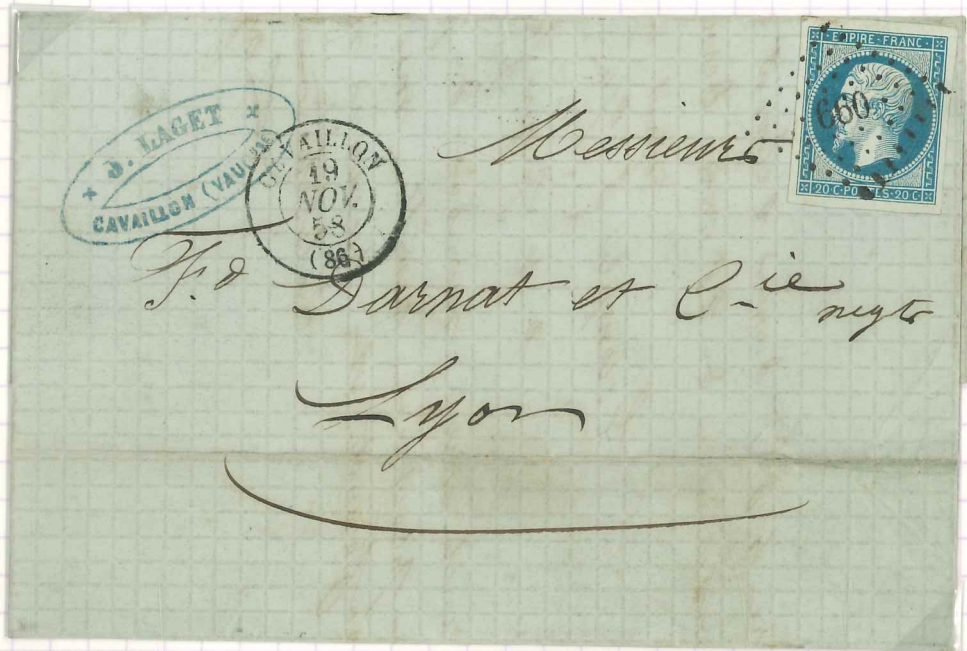 J. LAGET
CAVAILLON (VAUCLUSE)
CAVAILLON
19
NOV.
58
(86)
EMPIRE-FRANC
660
20 C·POSTES·20 C
Messieurs
F.d Darnat et C-ie negts
Lyon